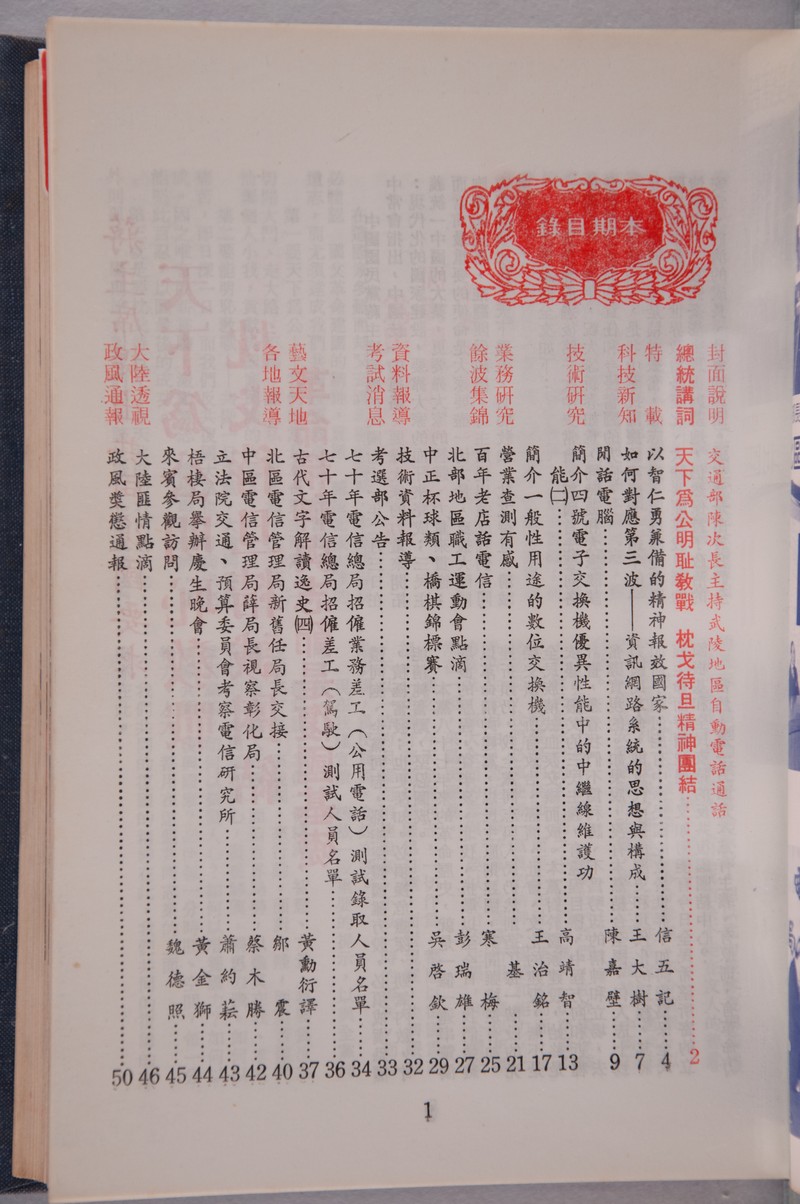 錄目期本
封面說明 交通部陳次長主持武陵地區自動電話通話
總統講詞 天下為公明耻教戰 枕戈待旦精神團結 2
特載 以智仁勇兼備的精神報效國家 信五記 4
科技新知 如何對應第三波——資訊網路系統的思想與構成 王大樹 7
閒話電腦 陳嘉壁 9
技術研究 簡介四號電子交換機優異性能中的中繼線維護功
能㈡ 高靖智 13
簡介一般性用途的數位交換機 王治銘 17
業務研究 營業查測有感 基 21
餘波集錦 百年老店話電信 寒梅 25
北部地區職工運動會點滴 彭瑞雄 27
中正杯球類、橋棋錦標賽 吳啓欽 29
資料報導 技術資料報導 32
考試消息 考選部公告 33
七十年電信總局招僱業務差工（公用電話）測試錄取人員名單 34
七十年電信總局招僱差工（駕駛）測試人員名單 36
藝文天地 古代文字解讀逸史㈣ 黃勳衍譯 37
各地報導 北區電信管理局新舊任局長交接 鄒震 40
中區電信管理局薛局長視察彰化局 蔡木勝 42
立法院交通、預算委員會考察電信研究所 蕭約 43
梧棲局舉辦慶生晚會 黃金獅 44
來賓參觀訪問 魏德照 45
大陸透視 大陸匪情點滴 46
政風通報 政風獎懲通報 50
1